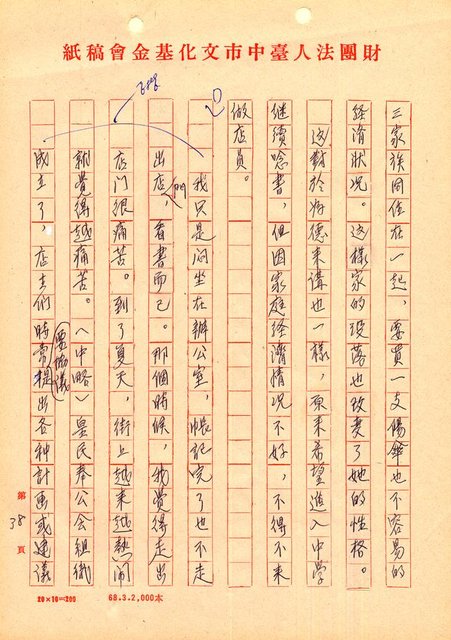 財團法人臺中市文化基金會稿紙
三家族同住在一起、要買一支陽傘也不容易的
經濟狀況。這樣家的沒落也改變了她的性格。
這對於好德來講也一樣，原來希望進入中學
繼續唸書，但因家庭經濟情況不好，不得不來
做店員。
我只是悶坐在辦公室，帳記完了也不走
出店門，看書而已。那個時候，我覺得走出
店门很痛苦。到了夏天，街上越來越熱鬧
就覺得越痛苦。（中略）皇民奉公会組織
成立了，店主们時常提出各种計画或建議
要協議
第38頁
20×10=200
68.3.2,000本